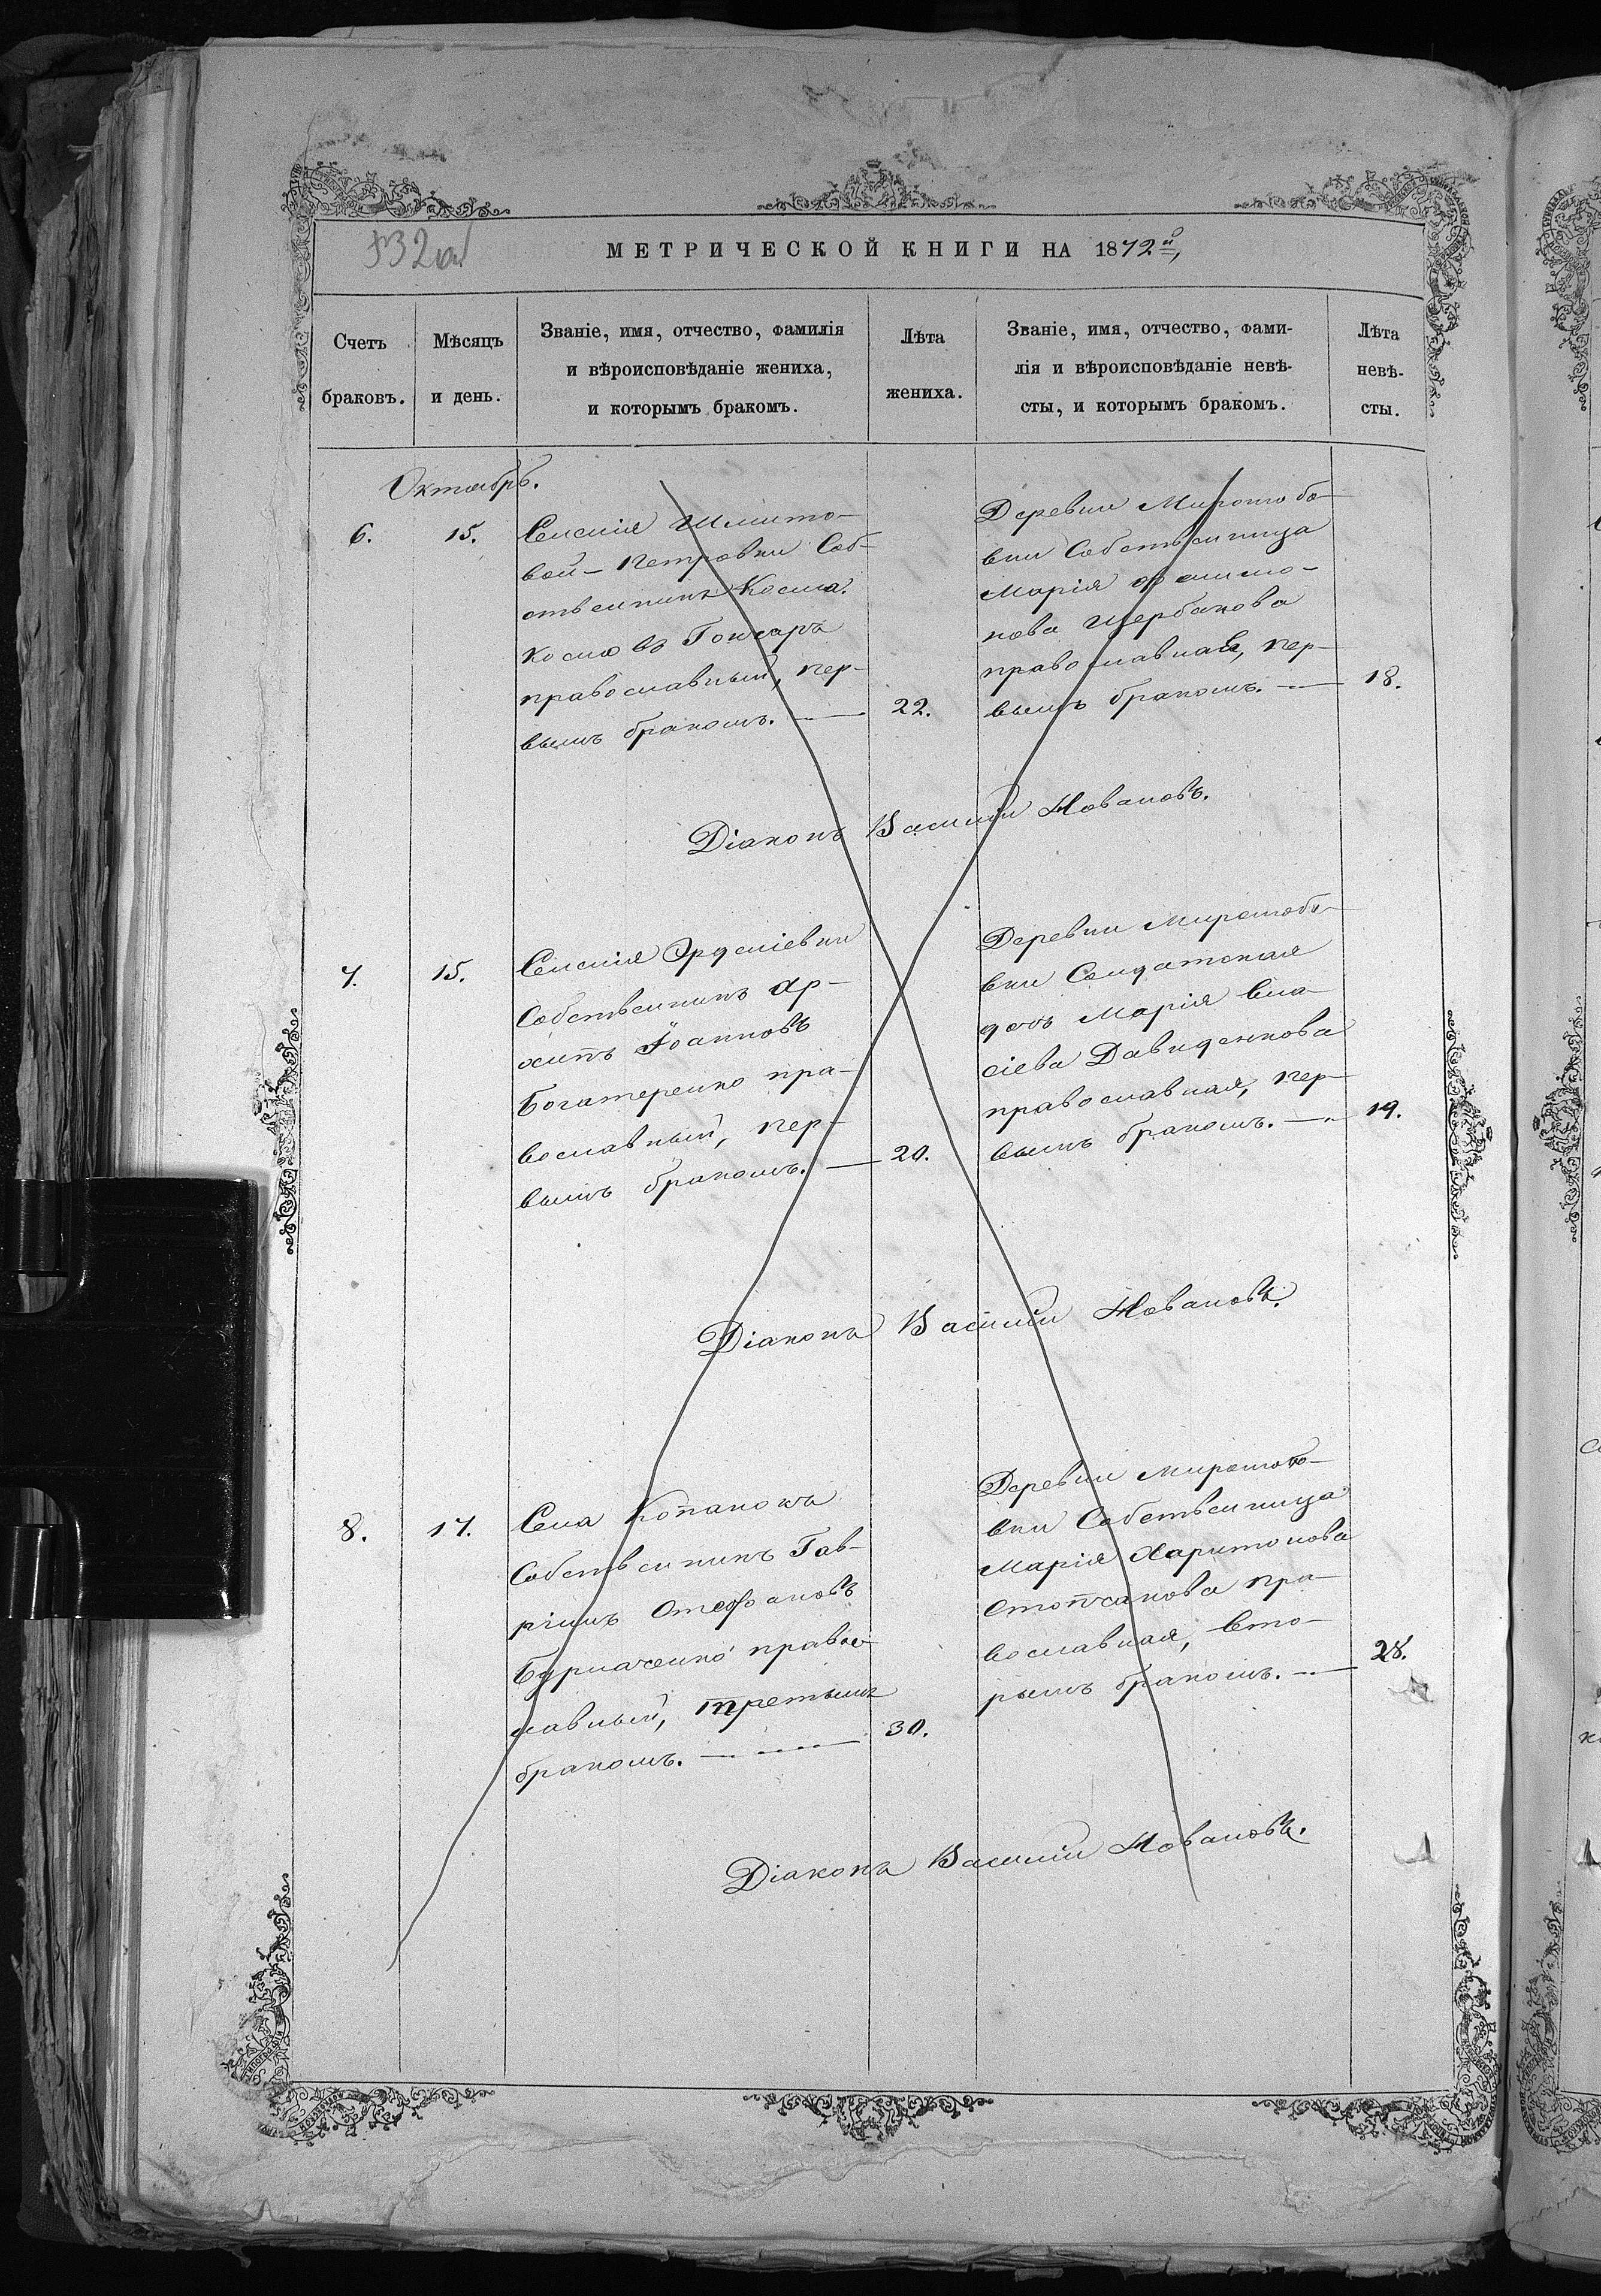 МЕТРИЧЕСКОЙ КНИГИ НА 1872й,
Счетъ браковъ.
Мѣсяцъ и день.
Званіе, имя, отчество, фамилія
и вѣроисповѣданіе жениха,
и которымъ бракомъ.
Лѣта жениха.
Званіе, имя, отчество, фами-
лія и вѣроисповѣданіе невѣ-
сты, и которымъ бракомъ.
Лѣта невѣ-
сты.
Октябрь.
6.
15.
вой-Петровки Соб-
ственникъ Косма
Космовъ Гончаръ
православный, пер-
вымъ бракомъ.
22.
Деревни Миролюбо-
вки Собственница
Марія
нова Щербакова
православная, пер-
вымъ бракомъ.
18.
Діаконъ Василій
7.
15.
Собственникъ Ар-
хипъ Іоанновъ
Богатеренко пра-
вославный, пер-
вымъ бракомъ.
20.
Деревни Миролюбо-
вки Солдатская
дочь Марія Вла-
сіева Давиденкова
православная, пер-
вымъ бракомъ.
19.
Діаконъ Василій
8.
17.
Села Копанокъ
Собственникъ Гав-
ріилъ Стефановъ
Бурлаченко правос-
лавный, третьимъ
бракомъ.
30.
Деревни Миролюбо-
вки Собственница
Марія Харитонова
Столчакова пра-
вославная, вто-
рымъ бракомъ.
28.
Діаконъ Василій